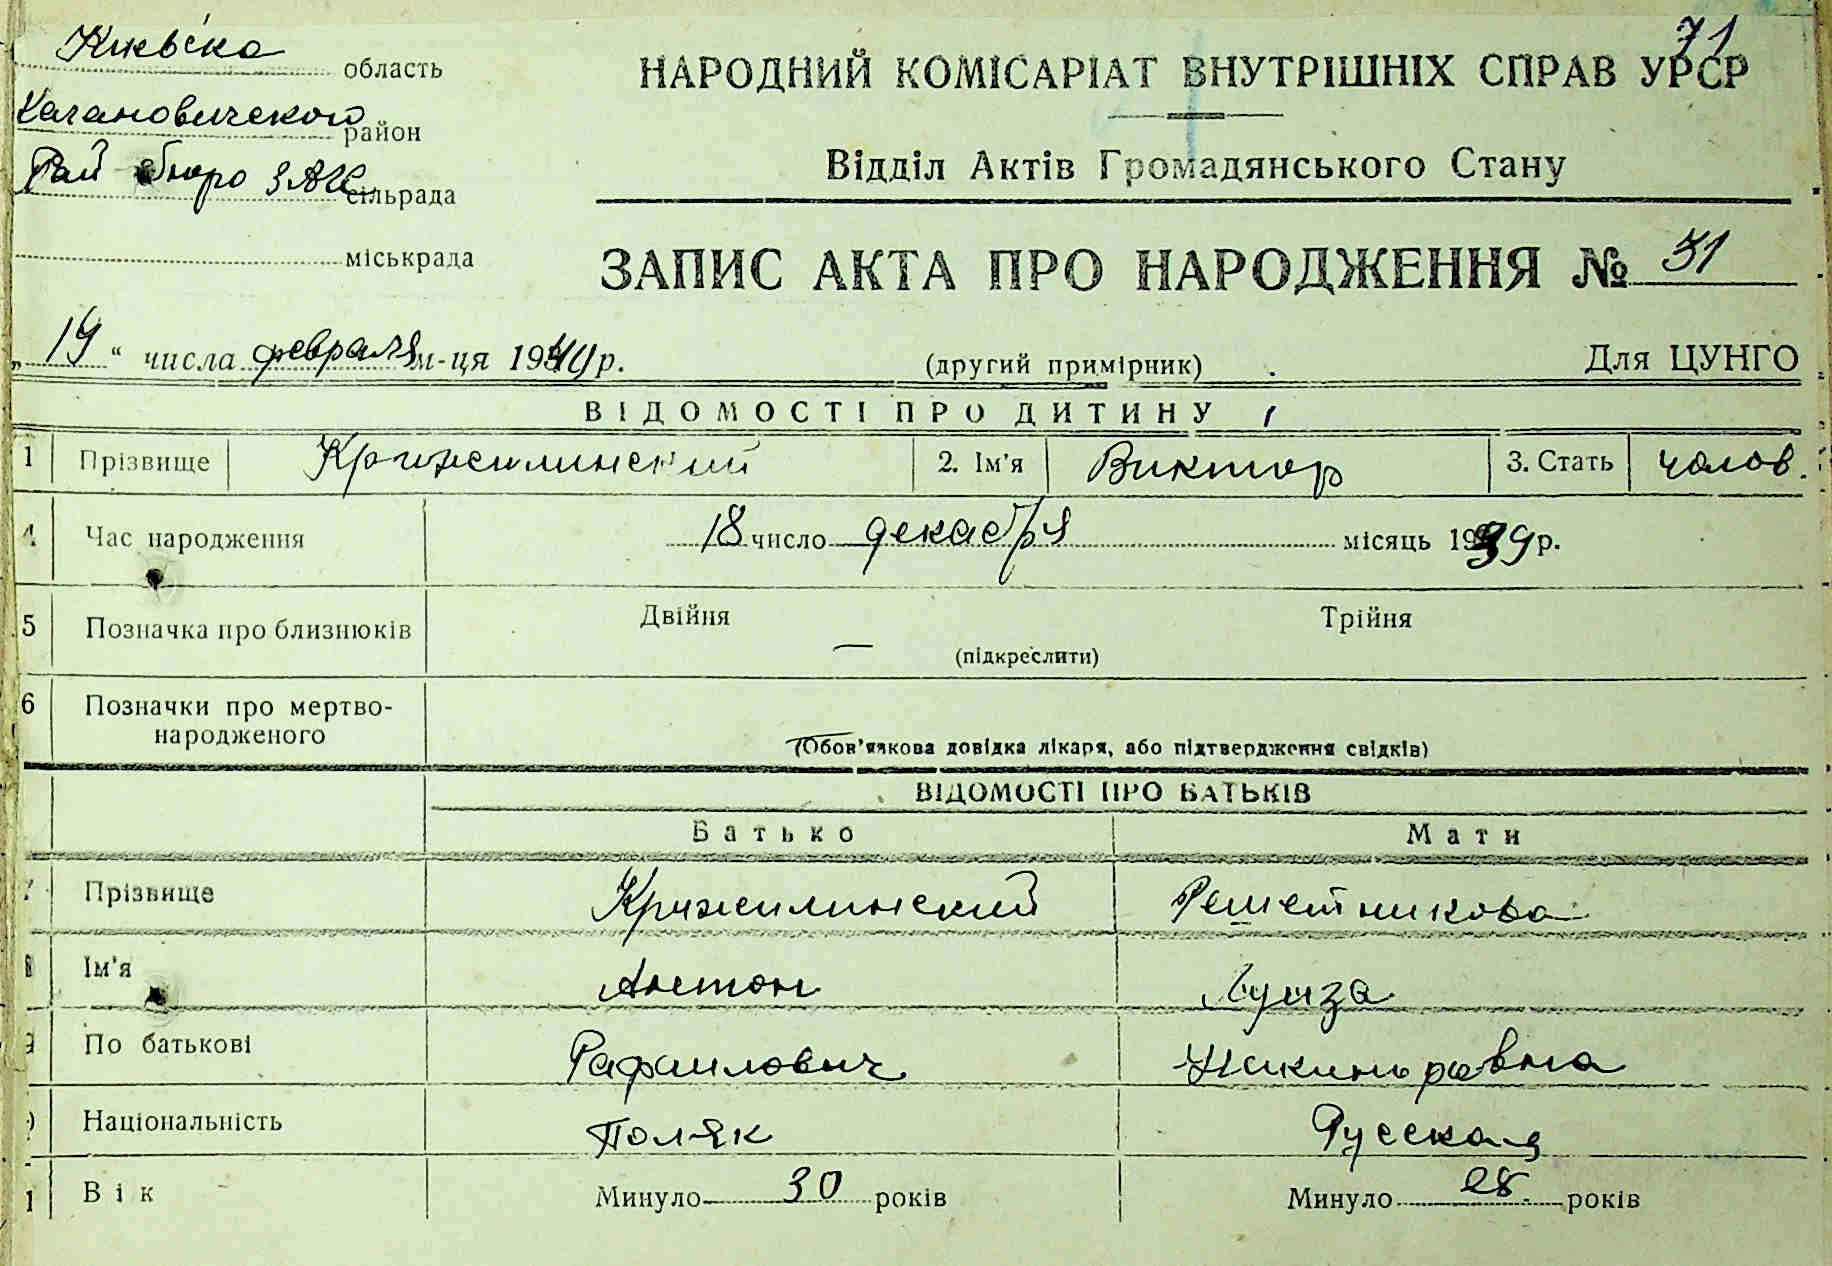 71
Київська область
НАРОДНИЙ КОМІСАРІАТ ВНУТРІШНІХ СПРАВ УРСР
Кагановичского район
Рай бюро ЗАГС сільрада
Відділ Актів Громадянського Стану
міськрада
ЗАПИС АКТА ПРО НАРОДЖЕННЯ № 31
„19“ числа февраля м-ця 1940 р. (другий примірник) Для ЦУНГО
ВІДОМОСТІ ПРО ДИТИНУ
1 Прізвище Кржижилинский 2. Ім'я Виктор 3. Стать чолов.
4 Час народження 18 число декабря місяць 1939 р.
5 Позначка про близнюків Двійня — Трійня
(підкреслити)
6 Позначки про мертво-
народженого
(Обов'язкова довідка лікаря, або підтвердження свідків)
ВІДОМОСТІ ПРО БАТЬКІВ
Батько Мати
7 Прізвище Решетникова
8 Ім'я Антон Луиза
9 По батькові Рафаилович
Національність Поляк Русская
1 Вік Минуло 30 років Минуло 28 років